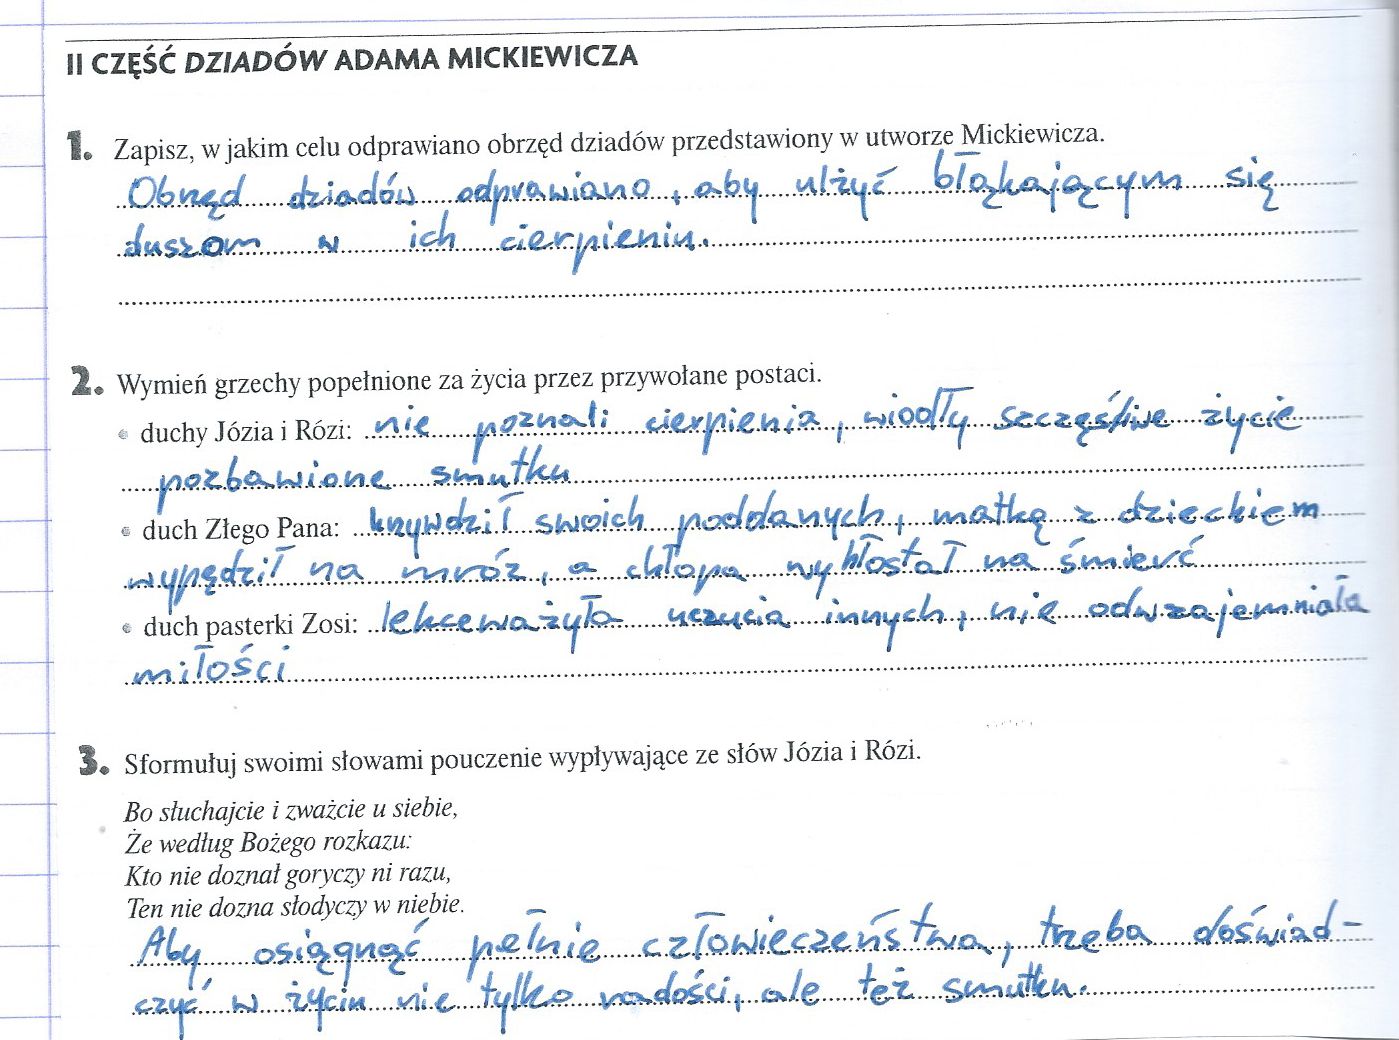 II CZĘŚĆ DZIADÓW ADAMA MICKIEWICZA
1. Zapisz, w jakim celu odprawiano obrzęd dziadów przedstawiony w utworze Mickiewicza.
Obrzęd dziadów odprawiano, aby ulżyć błąkającym się
duszom w ich cierpieniu.
2. Wymień grzechy popełnione za życia przez przywołane postaci.
• duchy Józia i Rózi: nie poznali cierpienia, wiodły szczęśliwe życie
pozbawione smutku
• duch Złego Pana: krzywdził swoich poddanych, matkę z dzieckiem
wypędził na mróz, a chłopa wychłostał na śmierć
• duch pasterki Zosi: lekceważyła uczucia innych, nie odwzajemniała
miłości
3. Sformułuj swoimi słowami pouczenie wypływające ze słów Józia i Rózi.
Bo słuchajcie i zważcie u siebie,
Że według Bożego rozkazu:
Kto nie doznał goryczy ni razu,
Ten nie dozna słodyczy w niebie.
Aby osiągnąć pełnię człowieczeństwa, trzeba doświad-
czyć w życiu nie tylko radości, ale też smutku.